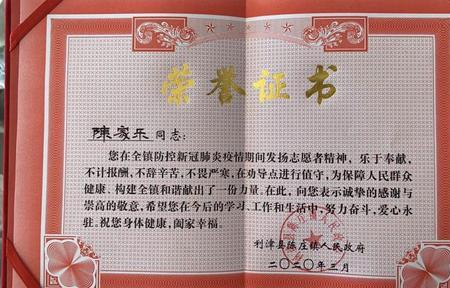 荣誉证书
陈家乐 同志：
您在全镇防控新冠肺炎疫情期间发扬志愿者精神，乐于奉献，
不计报酬，不辞辛苦，不畏严寒，在劝导点进行值守，为保障人民群众
健康、构建全镇和谐献出了一份力量。在此，向您表示诚挚的感谢与
崇高的敬意，希望您在今后的学习、工作和生活中，努力奋斗，爱心永
驻。祝您身体健康，阖家幸福。
利津县陈庄镇人民政府
二〇二〇年三月